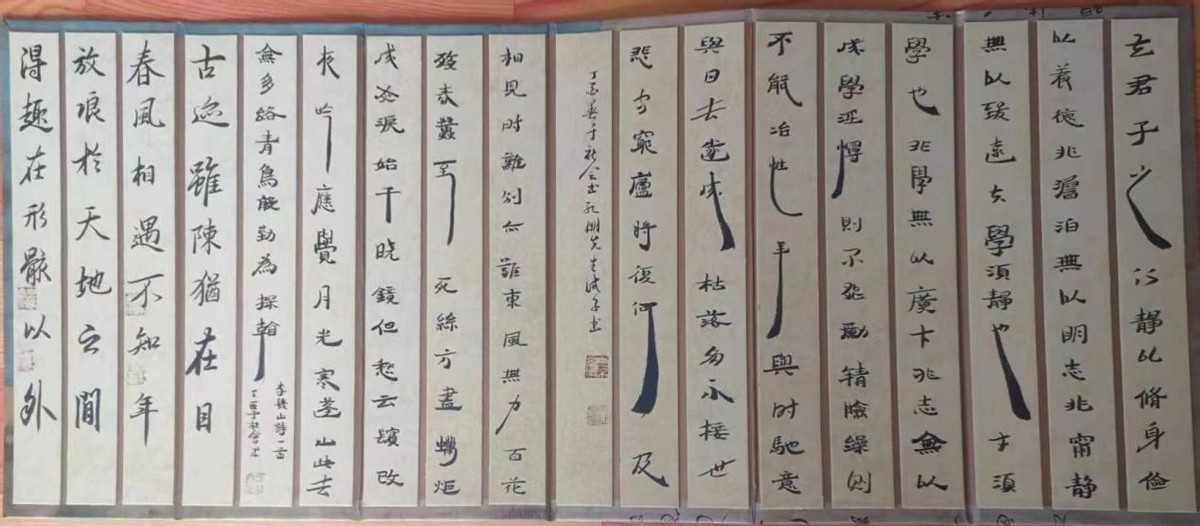 夫君子之行靜以脩身儉
以養德非澹泊無以明志非甯静
無以致遠夫學須静也才須
學也非學無以廣才非志無以
成學淫慢則不能勵精險躁則
不能冶性年與時馳意
與日去遂成枯落多不接世
悲守窮廬將復何及
丁酉于社會書孔明先生誡子書
相見時難别亦難東風無力百花
殘春蠶至死絲方盡蠟炬
成灰淚始干曉鏡但愁云鬢改
夜吟應覺月光寒蓬山此去
無多路青鳥殷勤為探看
李義山詩一首
丁酉社會書
古迹雖陳猶在目
春風相遇不知年
放浪於天地之間
得趣在形骸以外